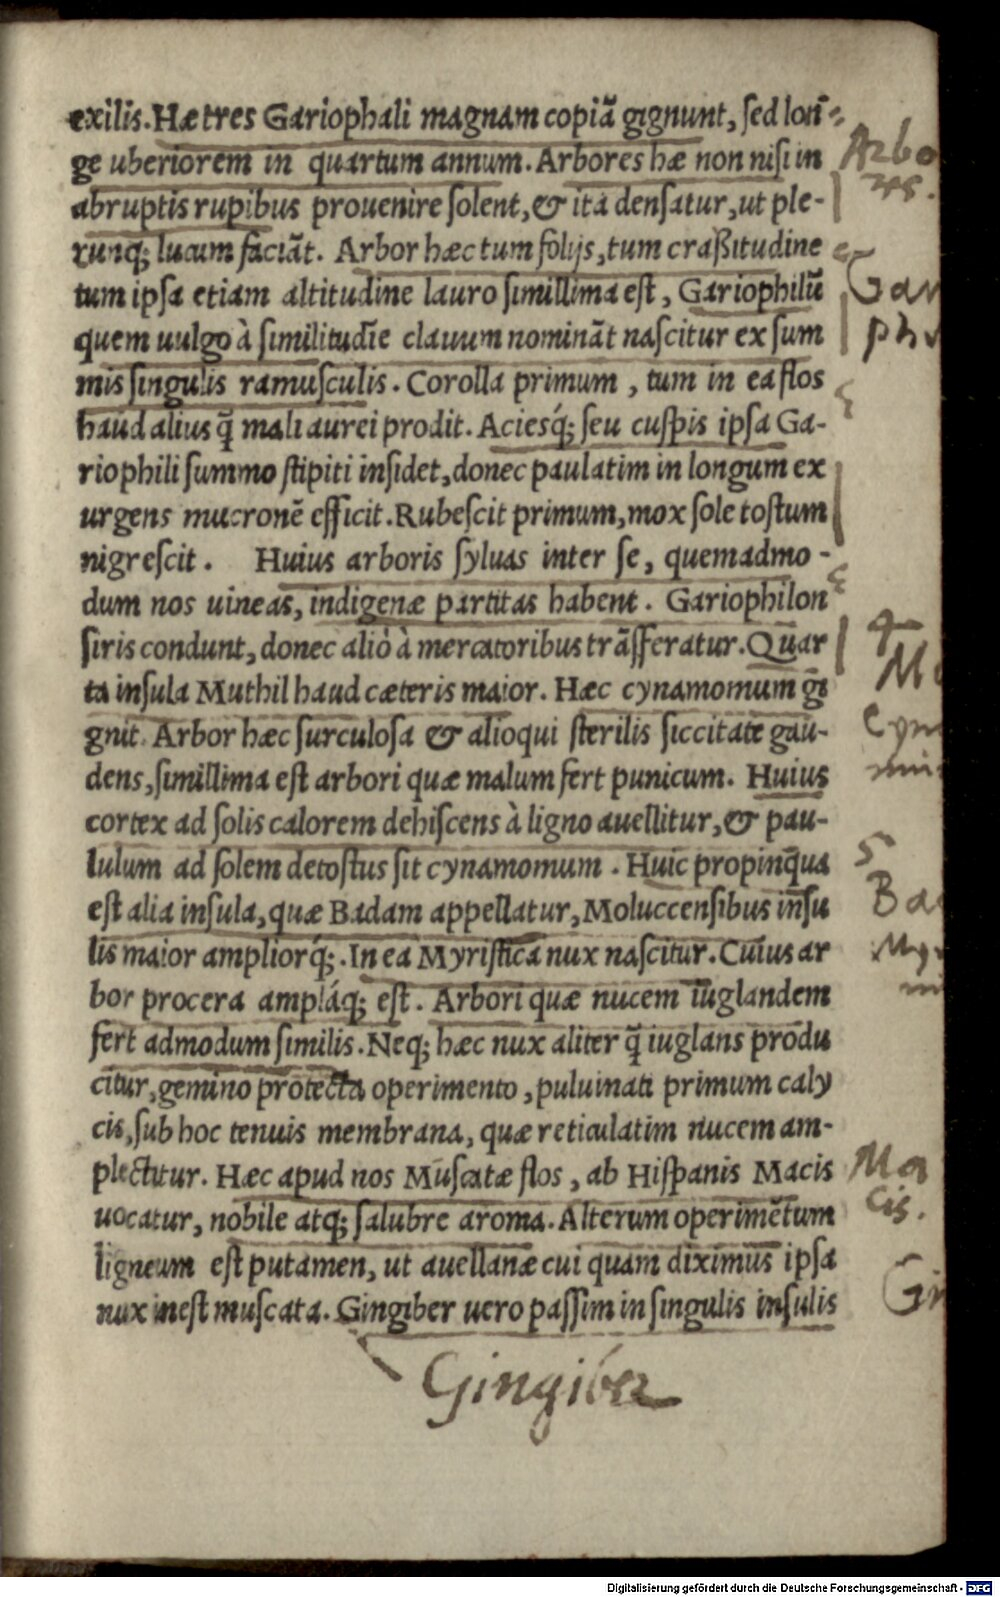 exilis. Hæ tres Gariophali magnam copiā gignunt, sed lon-
ge uberiorem in quartum annum. Arbores hæ non nisi in
abruptis rupibus prouenire solent, & ita densatur, ut ple-
runq; lucum faciāt. Arbor hæc tum folijs, tum craßitudine
tum ipsa etiam altitudine lauro simillima est, Gariophilū
quem uulgo à similitudīe clauum nomināt nascitur ex sum
mis singulis ramusculis. Corolla primum, tum in ea flos
haud alius q̄ mali aurei prodit. Aciesq́; seu cuspis ipsa Ga-
riophili summo stipiti insidet, donec paulatim in longum ex
urgens mucronē efficit. Rubescit primum, mox sole tostum
nigrescit. Huius arboris syluas inter se, quemadmo-
dum nos uineas, indigenæ partitas habent. Gariophilon
siris condunt, donec aliò à mercatoribus trāsferatur. Quar
ta insula Muthil haud cæteris maior. Hæc cynamomum gi
gnit. Arbor hæc surculosa & alioqui sterilis siccitate gau-
dens, simillima est arbori quæ malum fert punicum. Huius
cortex ad solis calorem dehiscens à ligno auellitur, & pau-
lulum ad solem detostus sit cynamomum. Huic propinqua
est alia insula, quæ Badam appellatur, Moluccensibus insu
lis maior ampliorq́;. In ea Myristica nux nascitur. Cuius ar
bor procera ampláq; est. Arbori quæ nucem iuglandem
fert admodum similis. Neq; hæc nux aliter q̄ iuglans produ
citur, gemino protecta operimento, puluinati primum caly
cis, sub hoc tenuis membrana, quæ reticulatim nucem am-
plectitur. Hæc apud nos Muscatæ flos, ab Hispanis Macis
uocatur, nobile atq; salubre aroma. Alterum operimētum
ligneum est putamen, ut auellanæ cui quam diximus ipsa
nux inest muscata. Gingiber uero passim in singulis insulis
Gingiber
Arbo
res.
Gar
ph
4
M
Cyn
5
Ba
My
Ma
cis.
Gi
Digitalisierung gefördert durch die Deutsche Forschungsgemeinschaft - DFG